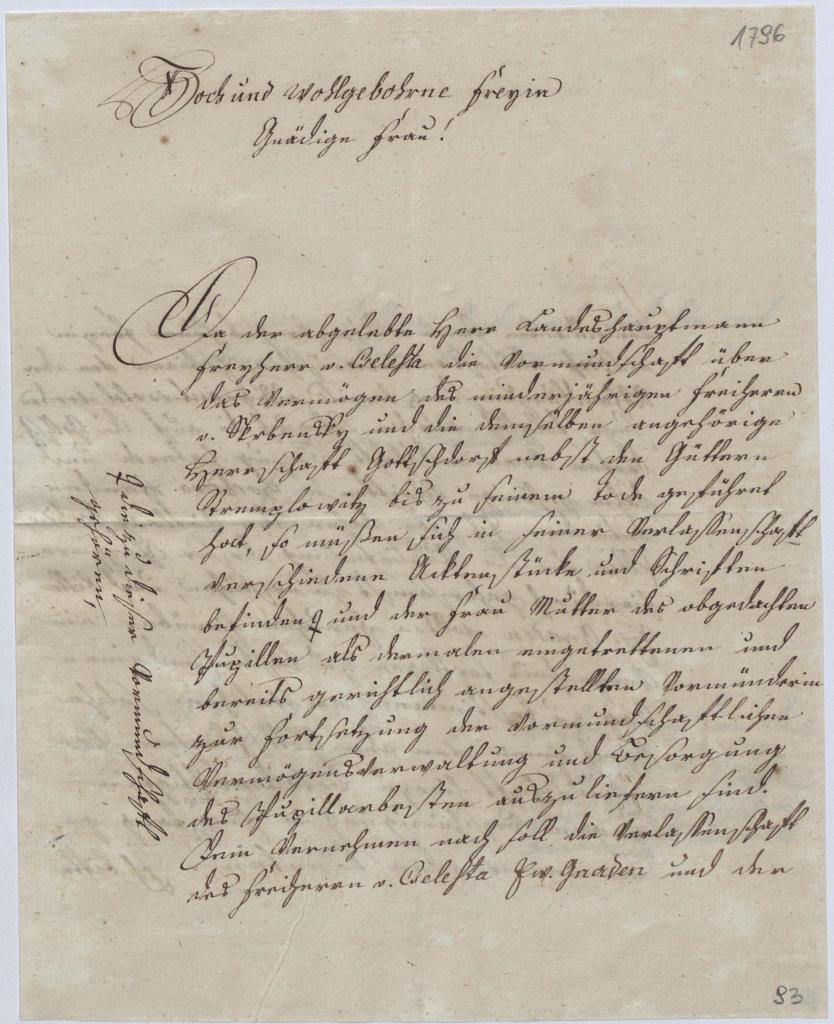 1796
Hoch und Wohlgebohrne Freyin
Gnädige Frau!
Da der abgelebte Herr Landeshauptmann
Freyherr v. Celesta die Vormundschaft über
das Vermögen des minderjährigen Freiherrn
v. Skrbensky und die demselben angehörige
Herrschaft Gottschdorf nebst den Güttern
Stremplowitz bis zu seinem Tode geführet
hat, so müßen sich in seiner Verlassenschaft
verschiedene Acktenstücke und Schriften
befinden, und der Frau Mutter des obgedachten
Pupillen als dermalen eingetrettenen und
bereits gerichtlich angestellten Vormünderin
zur Fortsetzung der vormundschaftlichen
Vermögensverwaltung und Besorgung
des Pupillarbesten auszuliefern sind.
Dem Vernehmen nach soll die Verlassenschaft
des Freiherrn v. Celesta Ew. Gnaden und der
die zu dieser Vormundschaft
gehören,
93